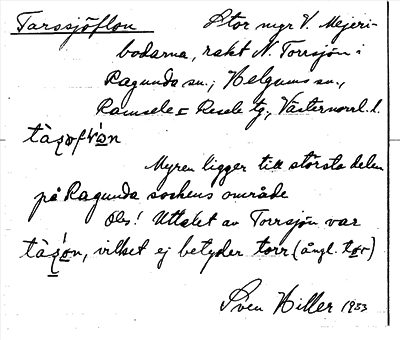 Tarssjöflon Stor myr V. Mejeri-
bodarna, rakt N. Torrsjön i
Ragunda sn., Helgums sn.,
Ramsele = Resele tg., Västernorrl. l.
Myren ligger till största delen
på Ragunda sockens område
Obs! Uttalet av Torrsjön var
vilket ej betyder torr (ångl. tør)
Sven Hiller 1933